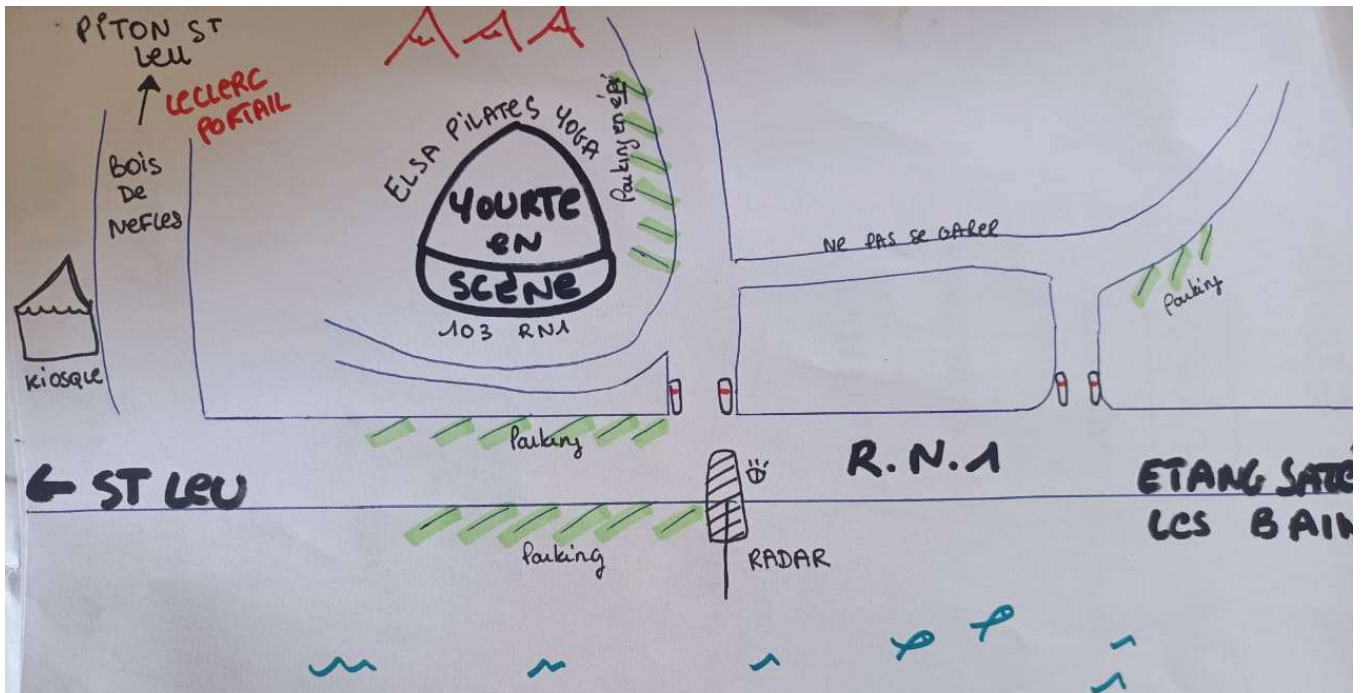 PITON ST
LEU
LECLERC
PORTAIL
BOIS
DE
NEFLES
KIOSQUE
ELSA PILATES YOGA
YOURTE
EN
SCÈNE
103 RN1
Parking en épi
NE PAS SE GARER
Parking
Parking
R.N.1
← ST LEU
ETANG SALÉ
LES BAIN
Parking
RADAR